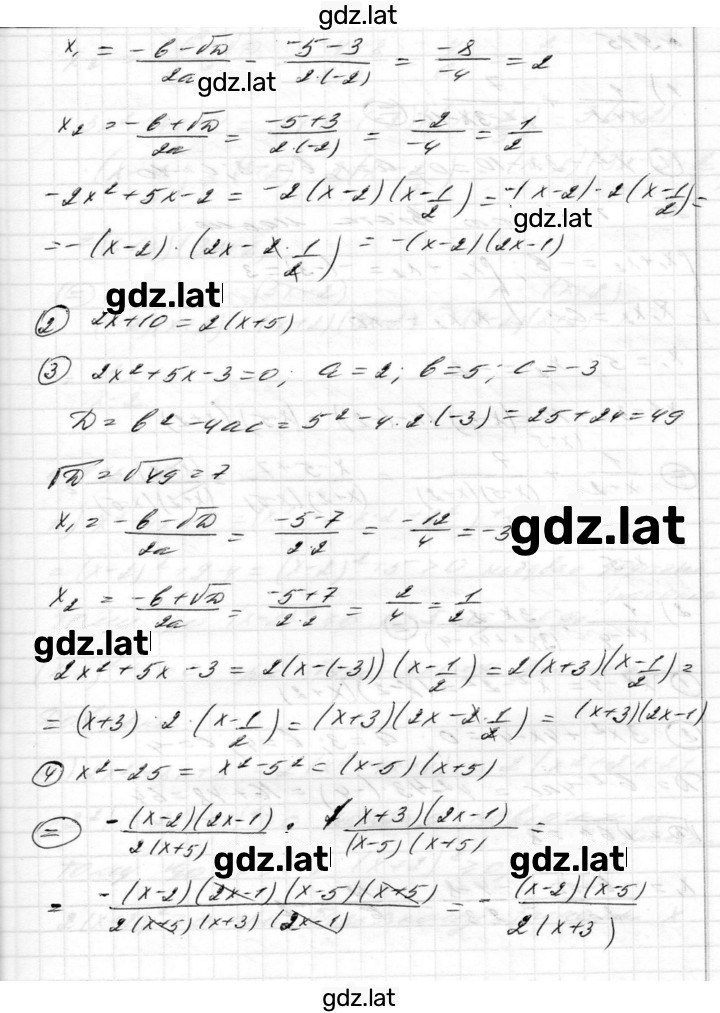 gdz.lat
x₁ = (-b-√D)/(2a) = (-5-3)/(2·(-2)) = (-8)/(-4) = 2
gdz.lat
x₂ = (-b+√D)/(2a) = (-5+3)/(2·(-2)) = (-2)/(-4) = 1/2
-2x²+5x-2 = -2(x-2)(x-1/2) = -1(x-2)·2(x-1/2) =
gdz.lat
= -(x-2)·(2x-2·1/2) = -(x-2)(2x-1)
gdz.lat
② 2x+10 = 2(x+5)
③ 2x²+5x-3=0; a=2; b=5; c=-3
D = b²-4ac = 5²-4·2·(-3) = 25+24 = 49
√D = √49 = 7
x₁ = (-b-√D)/(2a) = (-5-7)/(2·2) = (-12)/4 = -3
gdz.lat
x₂ = (-b+√D)/(2a) = (-5+7)/(2·2) = 2/4 = 1/2
gdz.lat
2x²+5x-3 = 2(x-(-3))(x-1/2) = 2(x+3)(x-1/2) =
= (x+3)·2·(x-1/2) = (x+3)(2x-2·1/2) = (x+3)(2x-1)
④ x²-25 = x²-5² = (x-5)(x+5)
⊜ -(x-2)(2x-1)/(2(x+5)) : (x+3)(2x-1)/((x-5)(x+5)) =
gdz.lat gdz.lat
= -(x-2)(2x-1)(x-5)(x+5)/(2(x+5)(x+3)(2x-1)) = -(x-2)(x-5)/(2(x+3))
gdz.lat